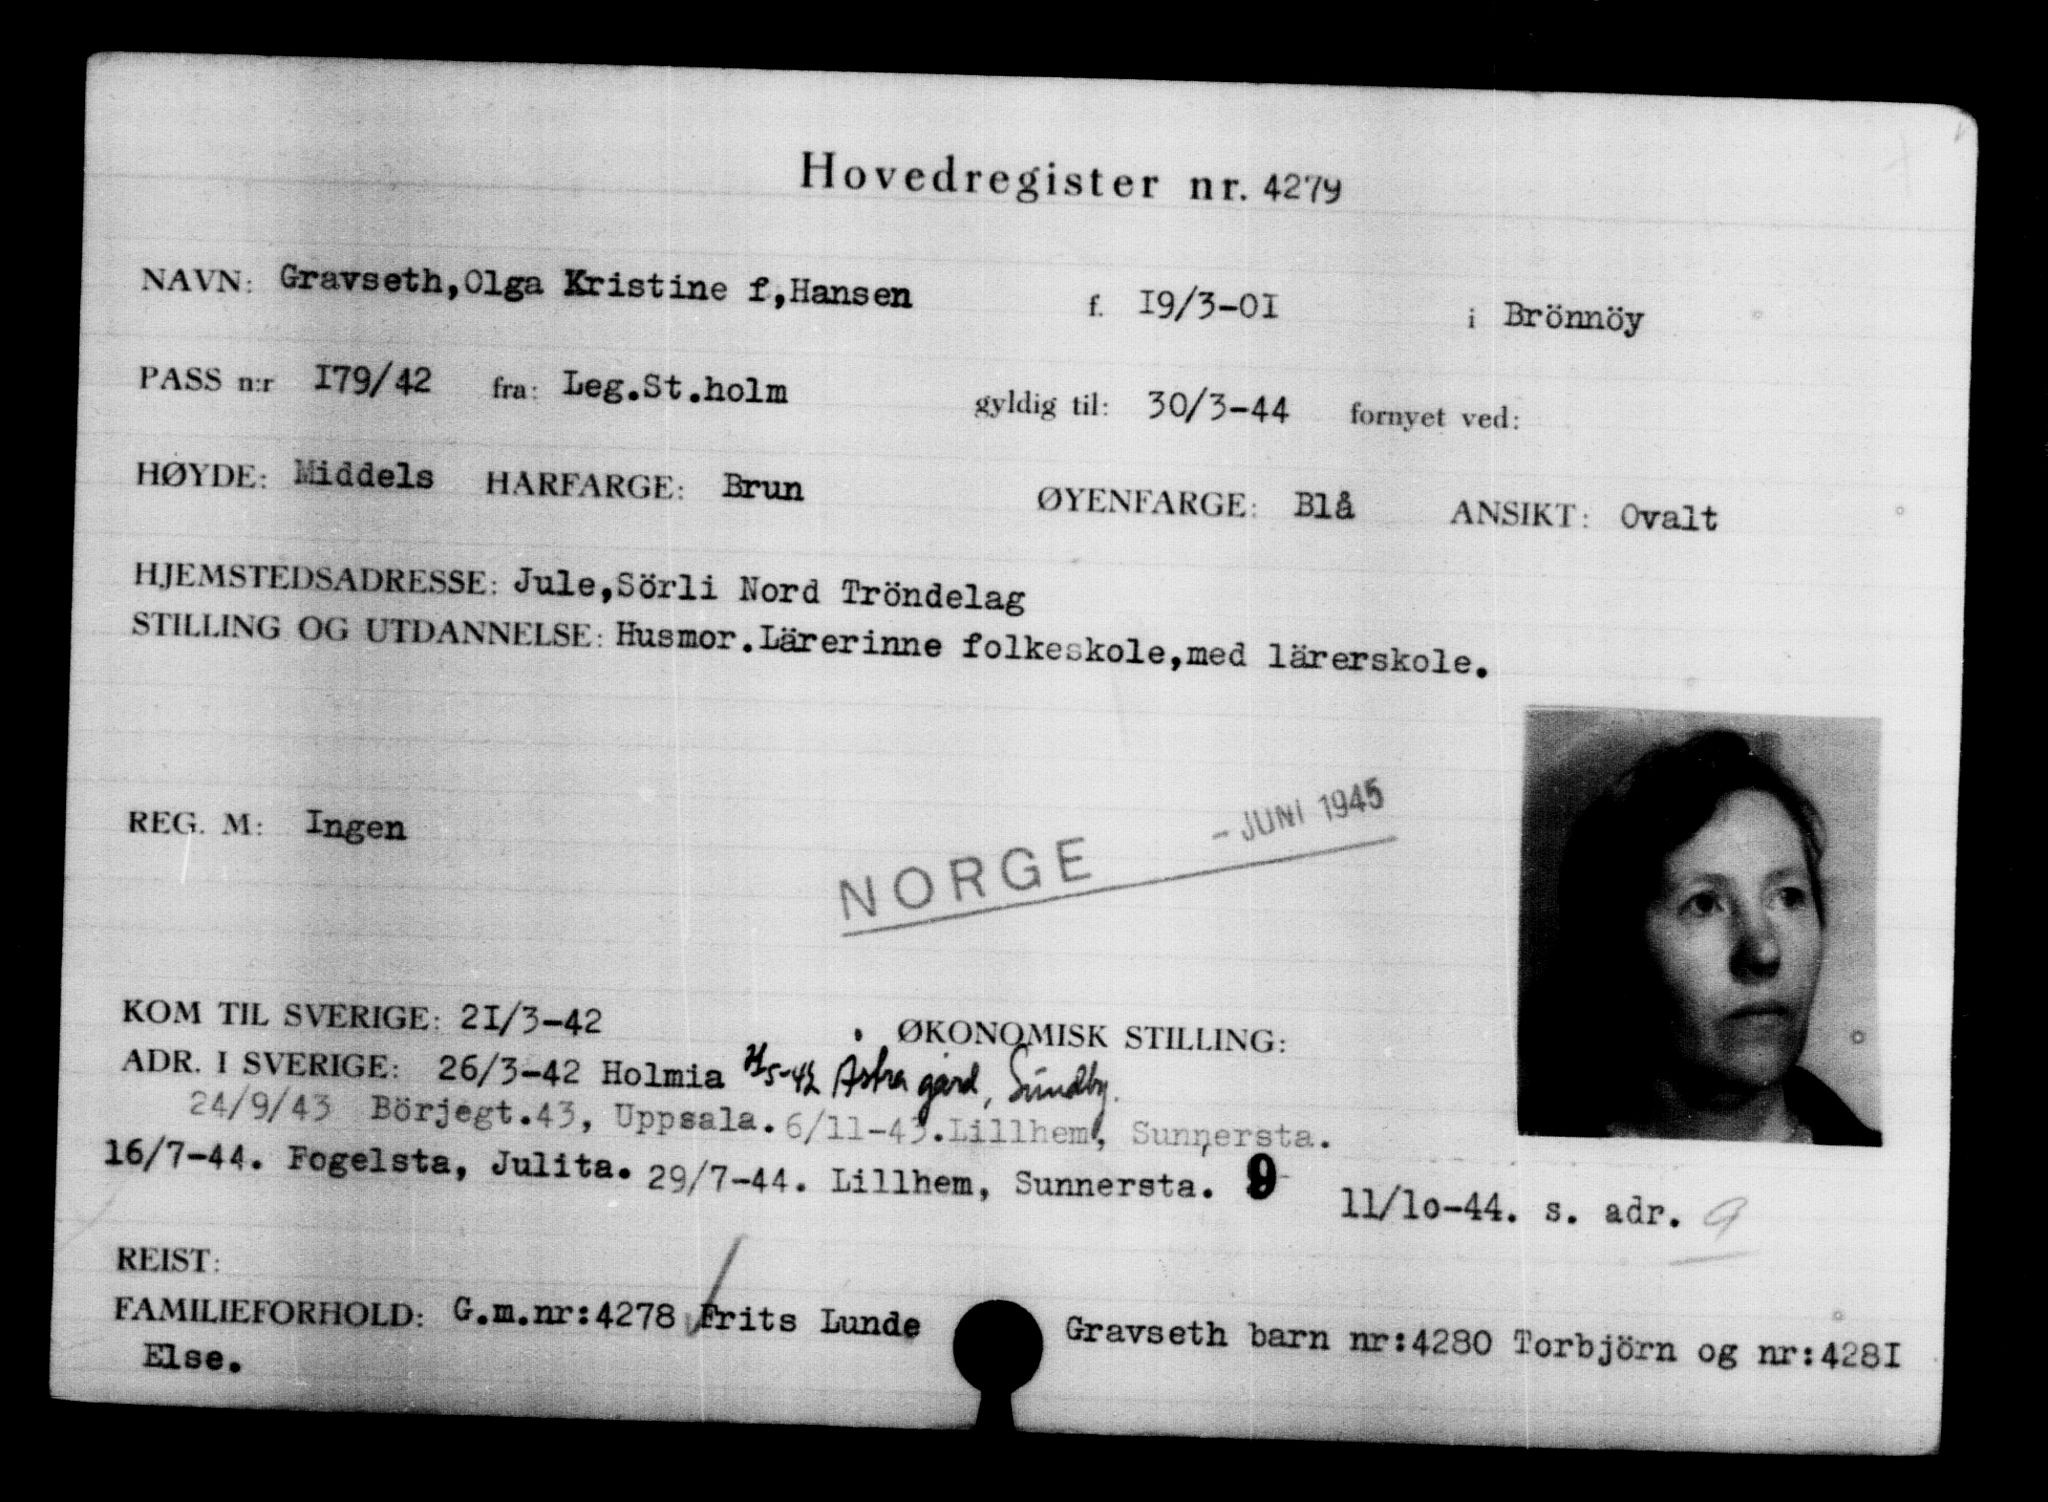 Hovedregister nr. 4279
NAVN: Gravseth,Olga Kristine f,Hansen f. I9/3-0I i Brönnöy
PASS n:r I79/42 fra: Leg.St.holm gyldig til: 30/3-44 fornyet ved:
HØYDE: Middels HARFARGE: Brun ØYENFARGE: Blå ANSIKT: Ovalt
HJEMSTEDSADRESSE: Jule,Sörli Nord Tröndelag
STILLING OG UTDANNELSE: Husmor.Lärerinne folkeskole,med lärerskole.
REG. M: Ingen
NORGE - JUNI 1945
KOM TIL SVERIGE: 2I/3-42 ØKONOMISK STILLING:
ADR. I SVERIGE: 26/3-42 Holmia Astra gård, Sundby.
24/9/43 Börjegt.43, Uppsala. 6/11-43.Lillhem, Sunnersta.
16/7-44. Fogelsta, Julita. 29/7-44. Lillhem, Sunnersta. 9 11/lo-44. s. adr. 9
REIST:
FAMILIEFORHOLD: G.m.nr:4278 Frits Lunde Gravseth barn nr:4280 Torbjörn og nr:428I
Else.